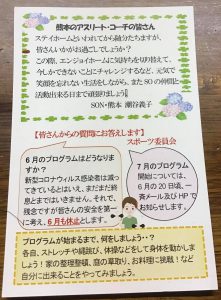 熊本のアスリート・コーチの皆さん
ステイホームといわれてから随分たちますが、
皆さんいかがお過ごしでしょうか？
この際、エンジョイホームに気持ちを切り替えて、
今しかできないことにチャレンジするなど、元気で
笑顔を忘れない生活をしながら、またSOの仲間と
活動出来る日まで頑張りましょう
SON・熊本 潮谷義子
【皆さんからの質問にお答えします】
スポーツ委員会
6月のプログラムはどうなりますか？
新型コロナウィルス感染者は減っ
てきているとはいえ、まだまだ終
息とまではいきません。それで、
残念ですが皆さんの安全を第一
に考え、6月も休止とします。
7月のプログラム
開始については、
6月の20日頃、一
斉メール及びHPで
お知らせします。
プログラムが始まるまで、何をしましょう・・？
各自、ストレッチや縄跳び、体操などをして身体を動かしましょう！家の整理整頓、庭の草取り、お料理に挑戦！など
自分に出来ることをやってみましょう。